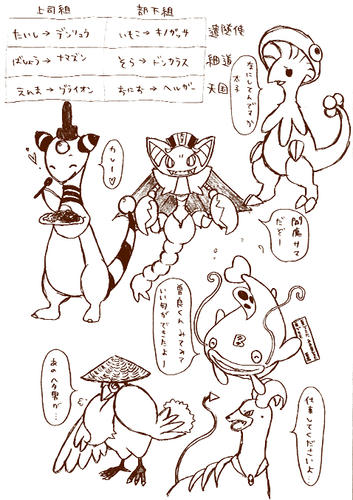 上司組 部下組
たいし→デンリュウ いもこ→キノガッサ 遣隋使
ばしょう→ナマズン そら→ドンカラス 細道
えんま→グライオン おにお→ヘルガー 天国
なにしてんですか
太子
カレー♡
閻魔サマ
だぞー
曽良くんみてみて
いい句ができたよー
あのヘタ男が…
仕事してくださいよ…